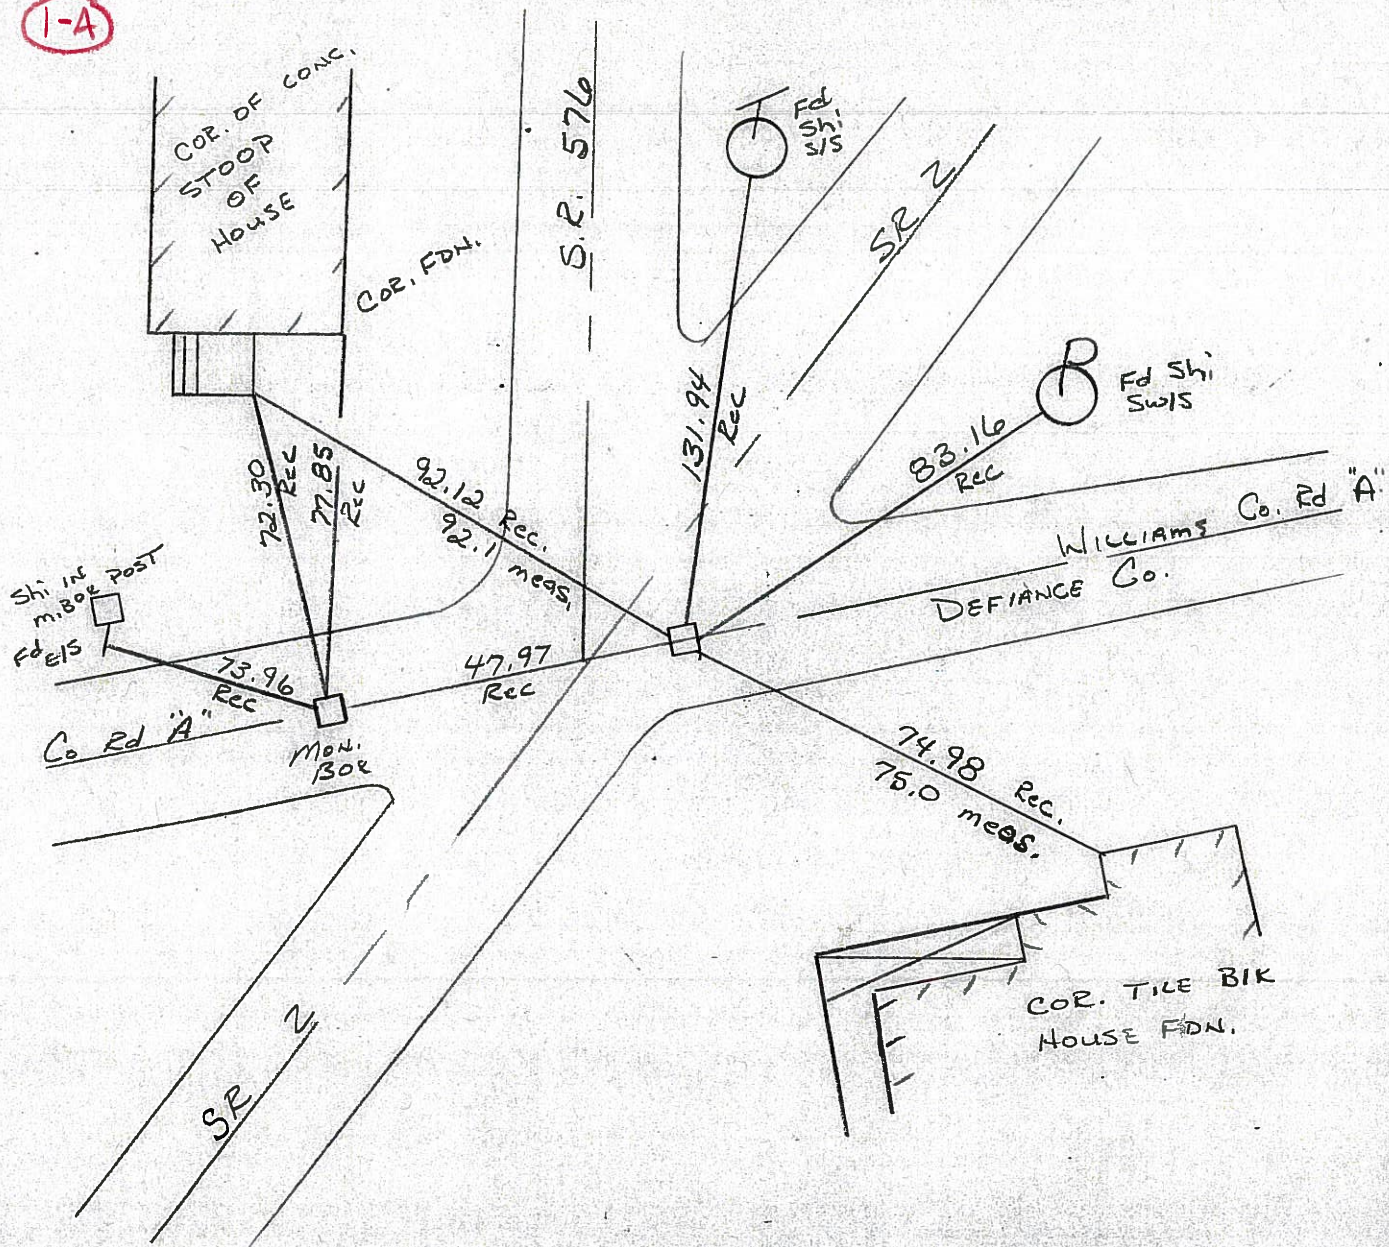 1-A
COR. OF CONC.
STOOP
OF
HOUSE
COR. FDN.
S.R. 576
Fd
Shi
S/S
SR 2
Fd Shi
SW/S
131.94
Rec
83.16
Rec
72.30
Rec
77.85
Rec
92.12 Rec.
92.1 meas.
WILLIAMS Co. Rd "A"
DEFIANCE Co.
Shi IN
M.BOX POST
Fd E/S
73.96
Rec
47.97
Rec
Co Rd "A"
MON.
BOX
74.98 Rec.
75.0 meas.
COR. TILE Blk
HOUSE FDN.
SR 2